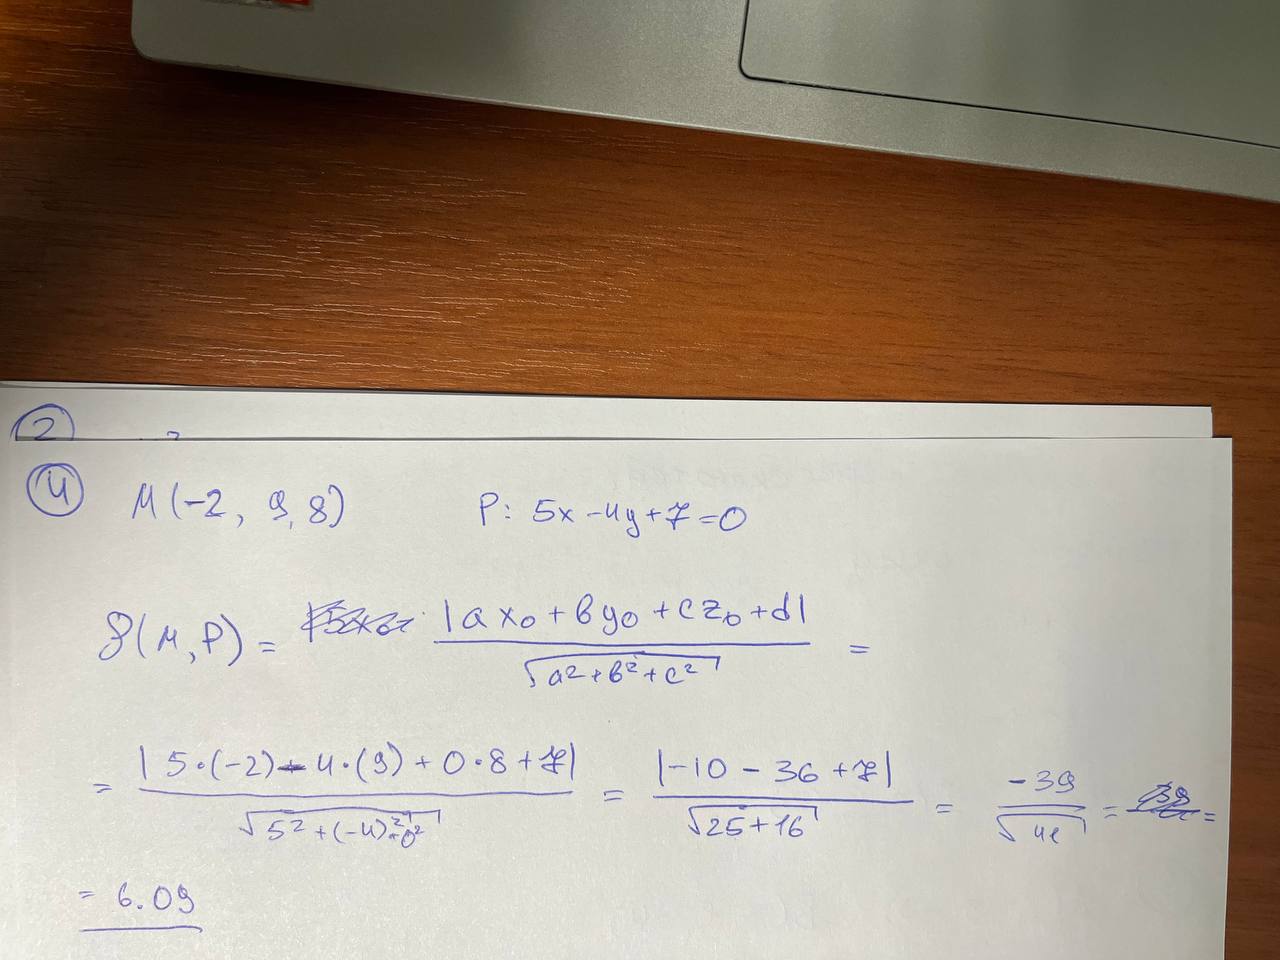 2
4 M(-2, 9, 8) P: 5x-4y+7=0
ρ(M,P) = |ax₀+by₀+cz₀+d| / √(a²+b²+c²) =
= |5·(-2)-4·(9)+0·8+7| / √(5²+(-4)²+0²) = |-10-36+7| / √(25+16) = -39 / √41 = =
= 6.09